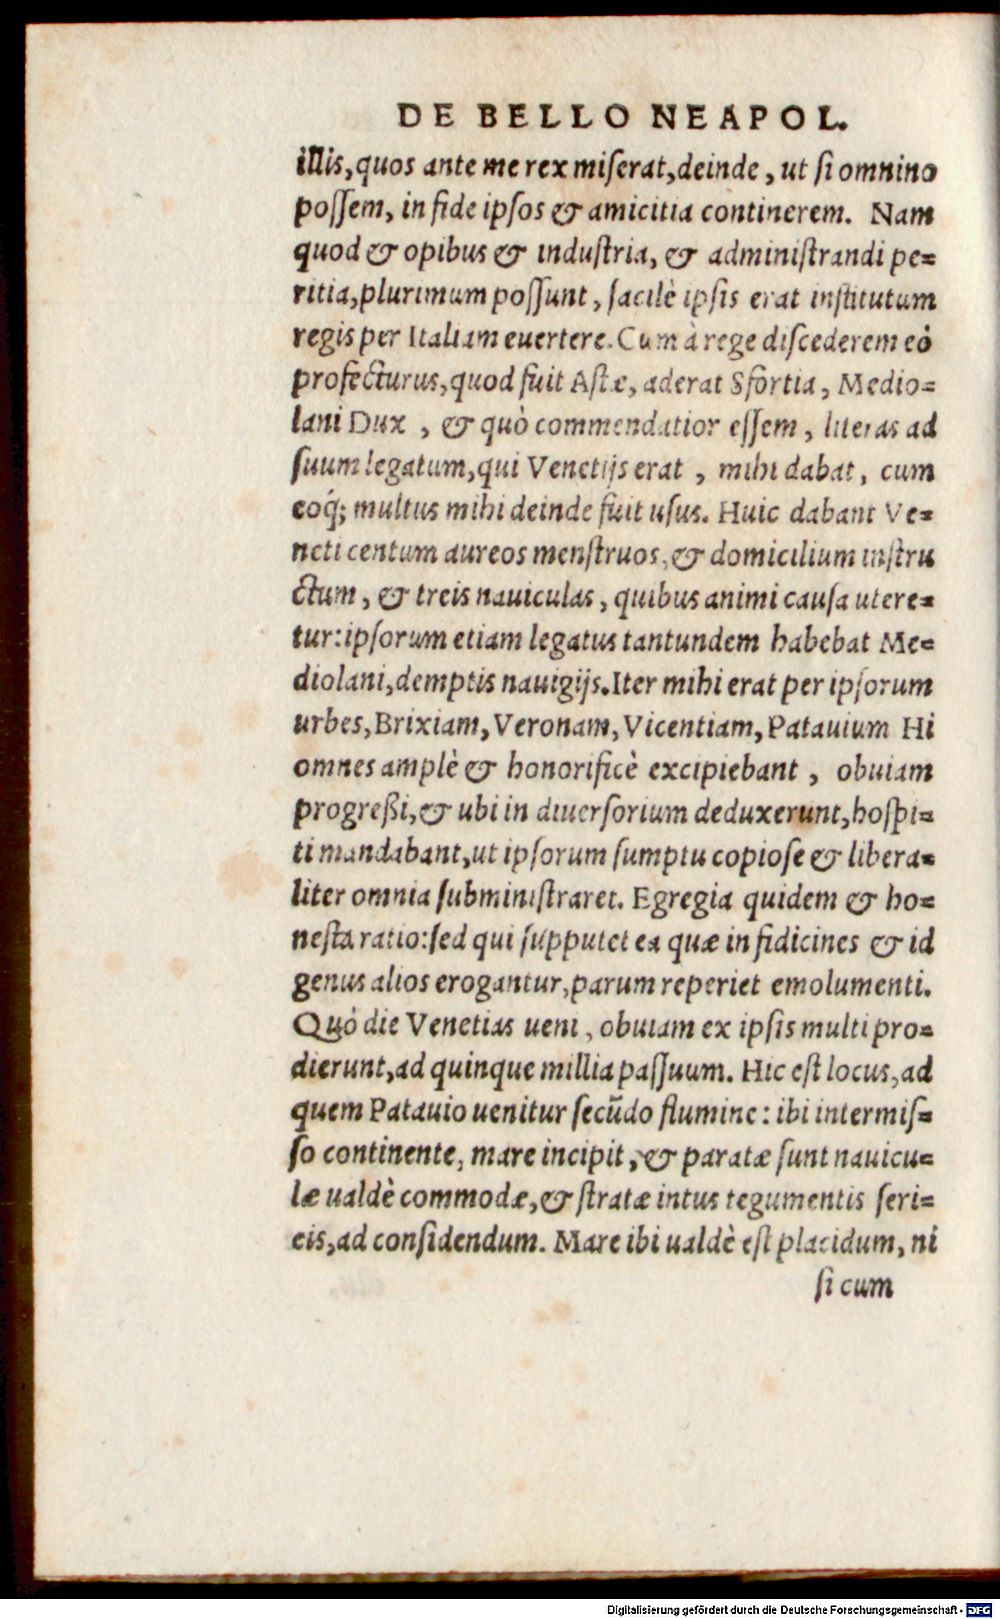 DE BELLO NEAPOL.
illis, quos ante me rex miſerat, deinde, ut ſi omnino
poſſem, in fide ipſos & amicitia continerem. Nam
quod & opibus & induſtria, & adminiſtrandi pe=
ritia, plurimum poſſunt, facilè ipſis erat inſtitutum
regis per Italiam euertere. Cum à rege diſcederem eò
profecturus, quod fuit Aſtæ, aderat Sfortia, Medio=
lani Dux, & quò commendatior eſſem, literas ad
ſuum legatum, qui Venetijs erat, mihi dabat, cum
eoq́; multus mihi deinde fuit uſus. Huic dabant Ve=
neti centum aureos menſtruos, & domicilium inſtru
ctum, & treis nauiculas, quibus animi cauſa utere=
tur: ipſorum etiam legatus tantundem habebat Me=
diolani, demptis nauigijs. Iter mihi erat per ipſorum
urbes, Brixiam, Veronam, Vicentiam, Patauium Hi
omnes amplè & honorificè excipiebant, obuiam
progreßi, & ubi in diuerſorium deduxerunt, hoſpi=
ti mandabant, ut ipſorum ſumptu copioſe & libera=
liter omnia ſubminiſtraret. Egregia quidem & ho=
neſta ratio: ſed qui ſupputet ea quæ in fidicines & id
genus alios erogantur, parum reperiet emolumenti.
Quó die Venetias ueni, obuiam ex ipſis multi pro=
dierunt, ad quinque millia paſſuum. Hic eſt locus, ad
quem Patauio uenitur ſecũdo flumine: ibi intermiſ=
ſo continente, mare incipit, & paratæ ſunt nauicu=
læ ualdè commodæ, & ſtratæ intus tegumentis ſeri=
cis, ad conſidendum. Mare ibi ualdè eſt placidum, ni
ſi cum
Digitalisierung gefördert durch die Deutsche Forschungsgemeinschaft - DFG